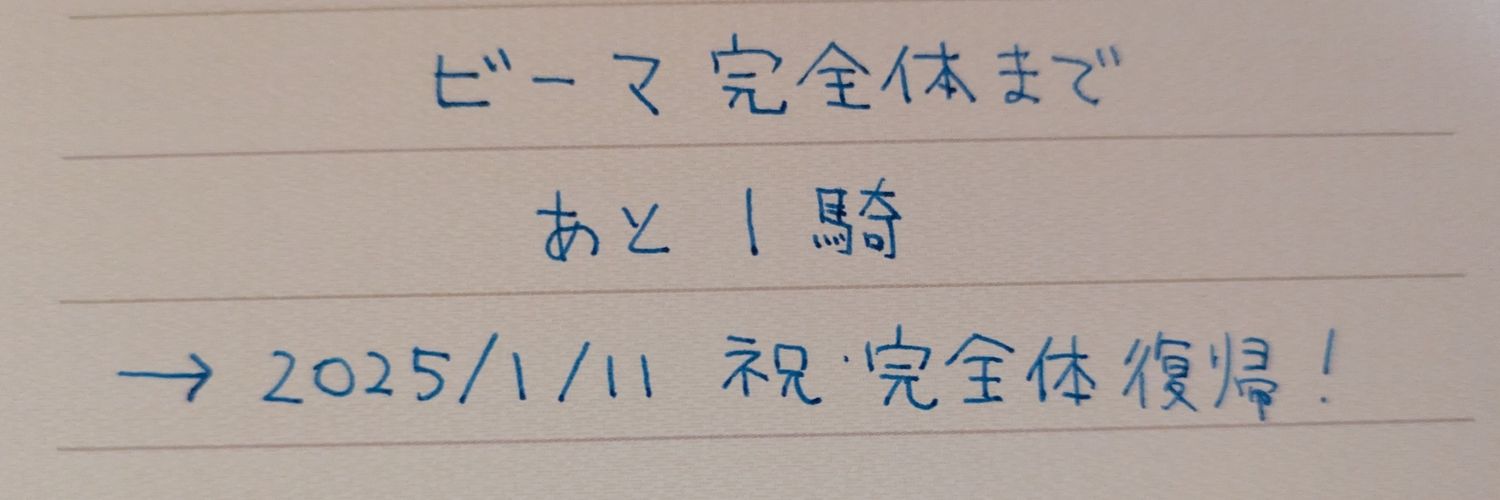 ビーマ 完全体まで
あと 1 騎
→ 2025/1/11 祝・完全体復帰!